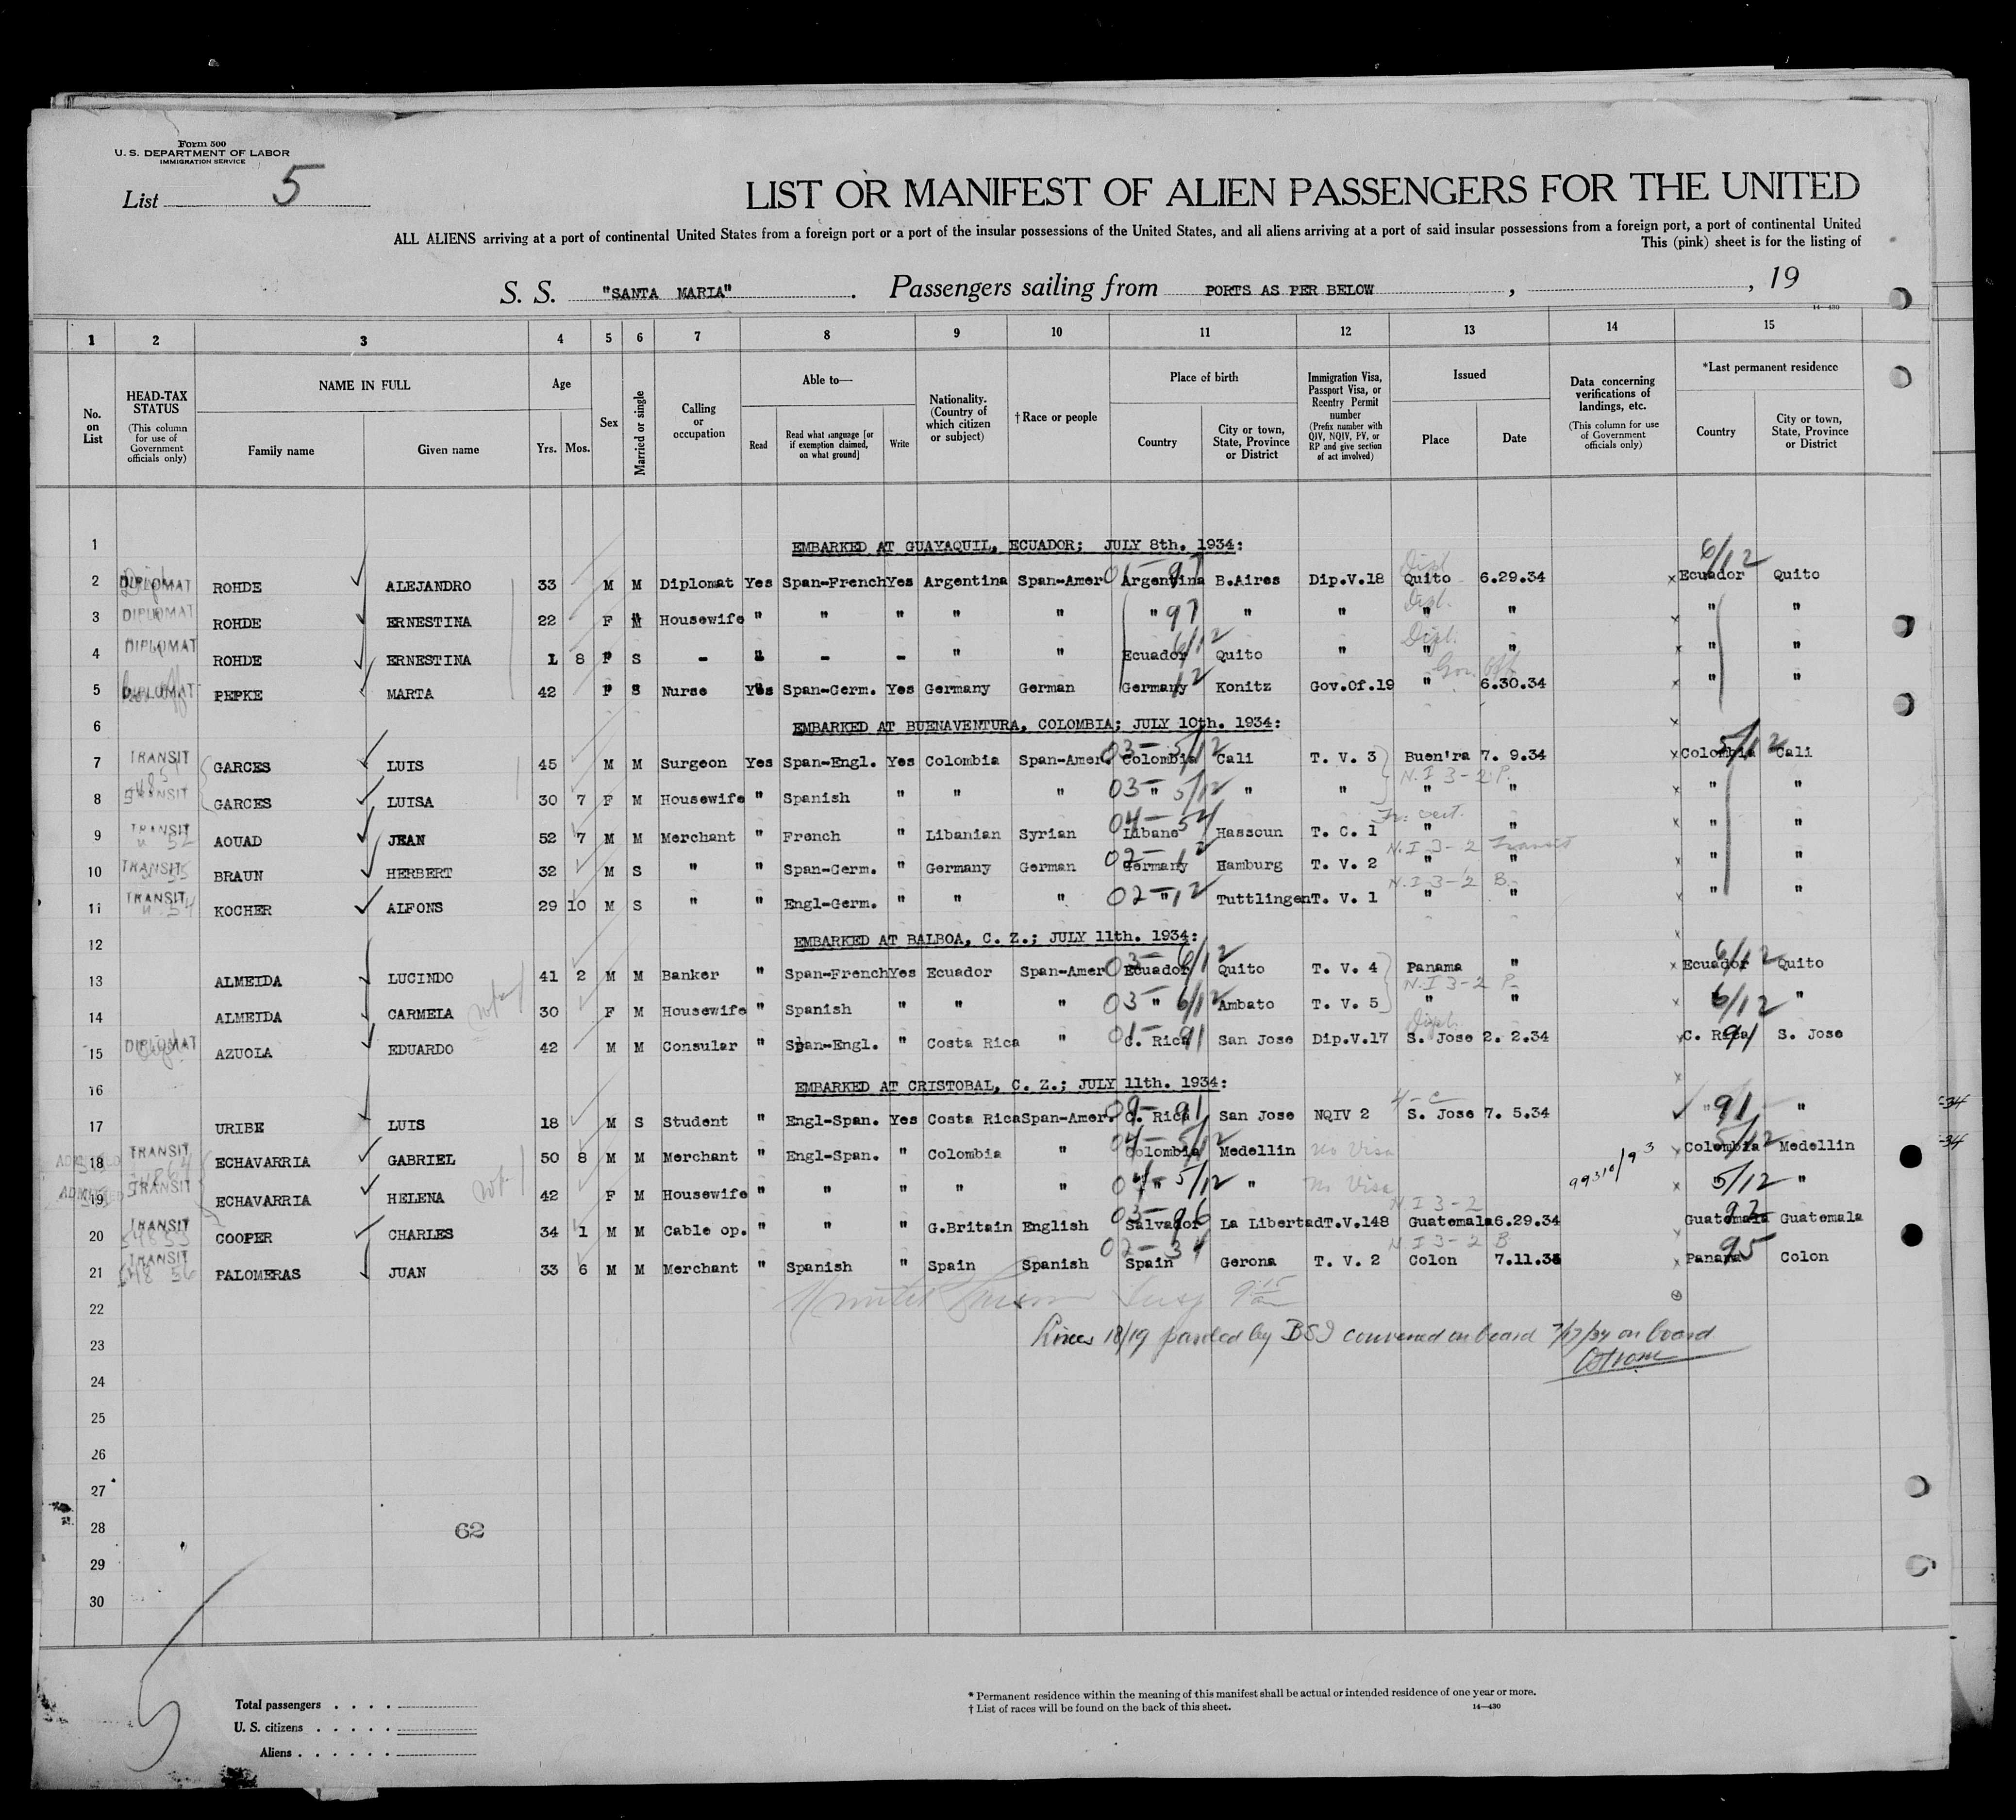 Form 500
U. S. DEPARTMENT OF LABOR
IMMIGRATION SERVICE
List 5
LIST OR MANIFEST OF ALIEN PASSENGERS FOR THE UNITED
ALL ALIENS arriving at a port of continental United States from a foreign port or a port of the insular possessions of the United States, and all aliens arriving at a port of said insular possessions from a foreign port, a port of continental United
This (pink) sheet is for the listing of
S. S. "SANTA MARIA". Passengers sailing from PORTS AS PER BELOW, , 19
14—430
1 2 3 4 5 6 7 8 9 10 11 12 13 14 15
No. on List
HEAD-TAX STATUS (This column for use of Government officials only)
NAME IN FULL
Family name Given name
Age
Yrs. Mos.
Sex
Married or single
Calling or occupation
Able to—
Read Read what language [or if exemption claimed, on what ground] Write
Nationality. (Country of which citizen or subject)
† Race or people
Place of birth
Country City or town, State, Province or District
Immigration Visa, Passport Visa, or Reentry Permit number (Prefix number with QIV, NQIV, PV, or RP and give section of act involved)
Issued
Place Date
Data concerning verifications of landings, etc. (This column for use of Government officials only)
*Last permanent residence
Country City or town, State, Province or District
1 EMBARKED AT GUAYAQUIL, ECUADOR; JULY 8th. 1934:
6/12
Dipl
2 DIPLOMAT ROHDE ALEJANDRO 33 M M Diplomat Yes Span-French Yes Argentina Span-Amer Argentina B.Aires Dip.V.18 Quito 6.29.34 x Ecuador Quito
Dipl.
3 DIPLOMAT ROHDE ERNESTINA 22 F M Housewife " " " " " " 97 " " " " x " "
Dipl.
4 DIPLOMAT ROHDE ERNESTINA 1 8 F S - " - - " " Ecuador 6/12 Quito " " " x " "
Gov. Off
5 DIPLOMAT PEPKE MARTA 42 F S Nurse Yes Span-Germ. Yes Germany German Germany 12 Konitz Gov.Of.19 " 6.30.34 x " "
6 EMBARKED AT BUENAVENTURA, COLOMBIA; JULY 10th. 1934: x
03- 5/12 5/12
7 TRANSIT GARCES LUIS 45 M M Surgeon Yes Span-Engl. Yes Colombia Span-Amer. Colombia Cali T. V. 3 Buen'ra 7. 9.34 x Colombia Cali
N.I 3-2 P.
8 TRANSIT GARCES LUISA 30 7 F M Housewife " Spanish " " " 03- " 5/12 " " " " x " "
04- 54
9 TRANSIT AOUAD JEAN 52 7 M M Merchant " French " Libanian Syrian Libano Hassoun T. C. 1 " " x " "
N.I 3-2 Transit
10 TRANSIT BRAUN HERBERT 32 M S " " Span-Germ. " Germany German 02- 12 Germany Hamburg T. V. 2 " " x " "
N.I 3-2 B.
11 TRANSIT KOCHER ALFONS 29 10 M S " " Engl-Germ. " " " 02- " 12 Tuttlingen T. V. 1 " " x " "
12 EMBARKED AT BALBOA, C. Z.; JULY 11th. 1934: x
03- 6/12 6/12
13 ALMEIDA LUCINDO 41 2 M M Banker " Span-French Yes Ecuador Span-Amer Ecuador Quito T. V. 4 Panama " x Ecuador Quito
N.I 3-2 P-
14 ALMEIDA CARMELA 30 F M Housewife " Spanish " " " 03- " 6/12 Ambato T. V. 5 " " x 6/12 "
Dipl.
15 DIPLOMAT AZUOLA EDUARDO 42 M M Consular " Span-Engl. " Costa Rica " 01- 91 C. Rica San Jose Dip.V.17 S. Jose 2. 2.34 x C. Rica 91 S. Jose
16 EMBARKED AT CRISTOBAL, C. Z.; JULY 11th. 1934: x
4-c
17 URIBE LUIS 18 M S Student " Engl-Span. Yes Costa Rica Span-Amer. 09- 91 C. Rica San Jose NQIV 2 S. Jose 7. 5.34 " 91 "
04- 5/12 5/12
18 TRANSIT ECHAVARRIA GABRIEL 50 8 M M Merchant " Engl-Span. " Colombia " Colombia Medellin No Visa 99310/93 x Colombia Medellin
19 ADMITTED TRANSIT ECHAVARRIA HELENA 42 F M Housewife " " " " " 04- " 5/12 " No Visa x 5/12 "
N I 3-2
20 TRANSIT 54855 COOPER CHARLES 34 1 M M Cable op. " " " G.Britain English 03- 96 Salvador La Libertad T.V.148 Guatemala 6.29.34 Guatemala Guatemala
N I 3-2 B
21 TRANSIT 548 56 PALOMERAS JUAN 33 6 M M Merchant " Spanish " Spain Spanish 02- 31 Spain Gerona T. V. 2 Colon 7.11.34 x Panama 95 Colon
22
23 Lines 18/19 passed by BSI convened on board 7/17/34 on board
24
25
26
27
28 62
29
30
5
Total passengers . . . .
U. S. citizens . . . . .
Aliens . . . . . .
* Permanent residence within the meaning of this manifest shall be actual or intended residence of one year or more.
† List of races will be found on the back of this sheet.
14—430